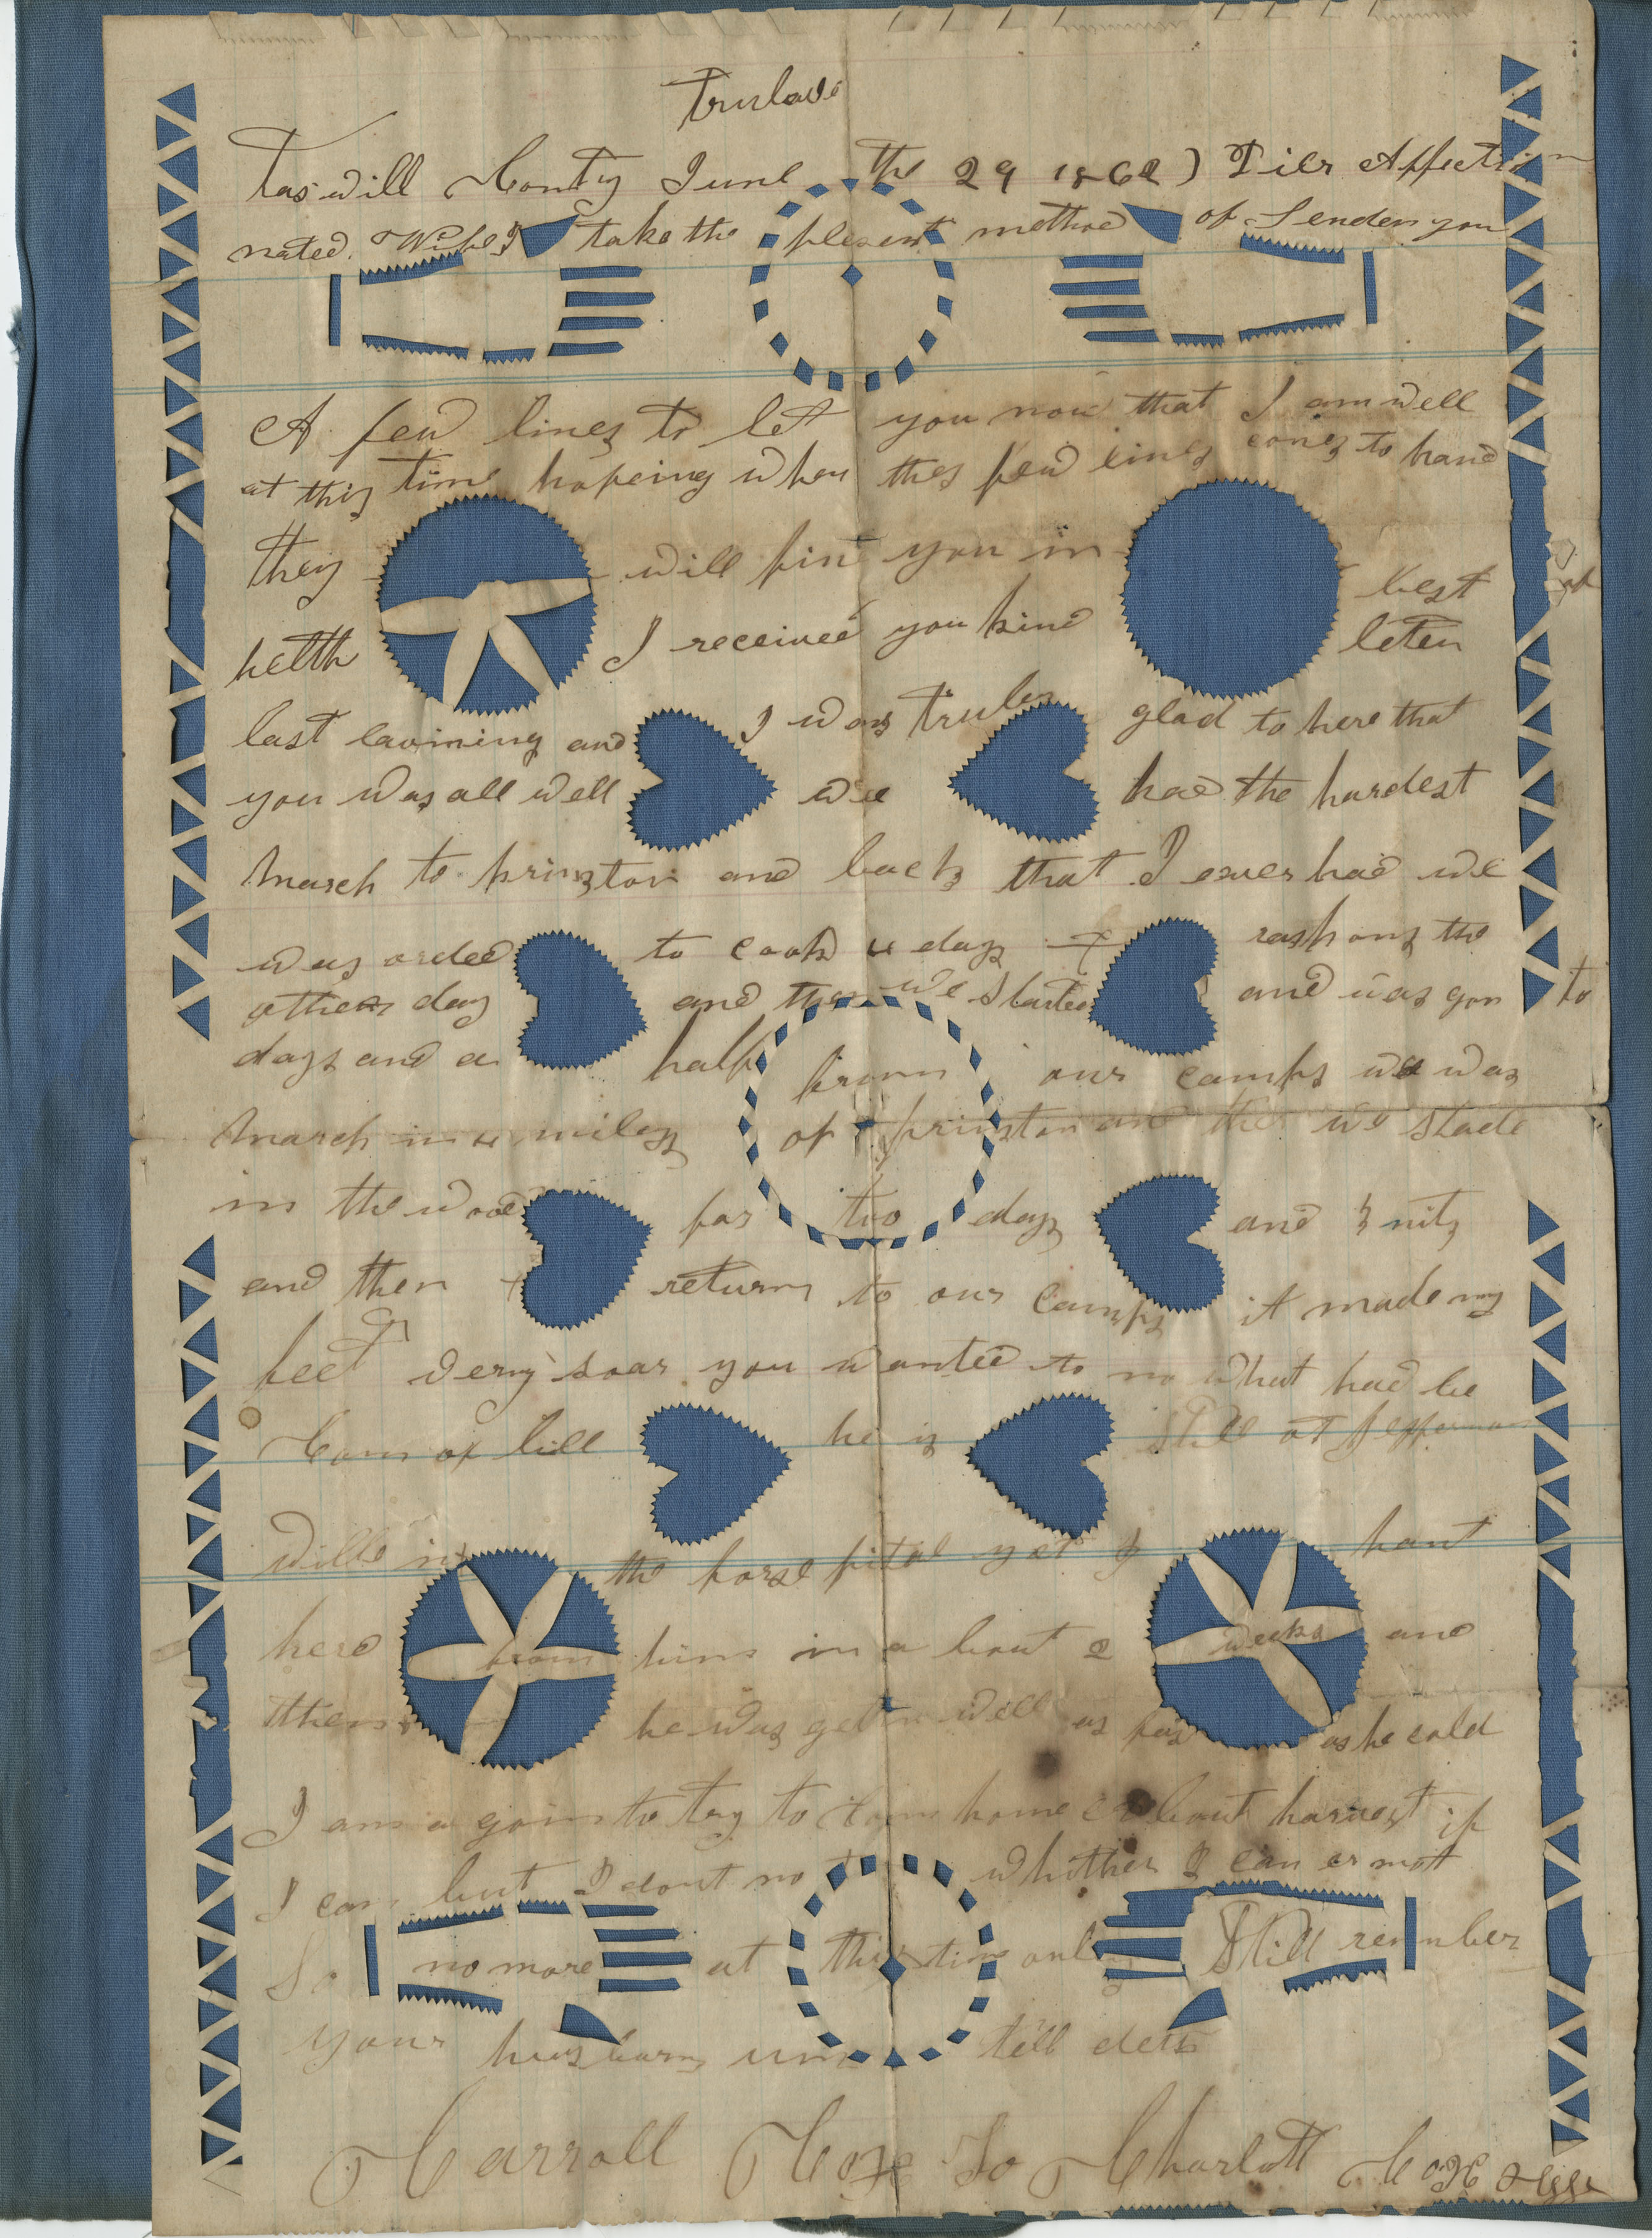 Trulove
Taswill Conty June the 29 1862) Dier Affection
nated Wife I take the plesent method of Senden you
A few lines to let you now that I am well
at this time hopeing when thes few lines comes to hand
they will fin you in best
helth I received you kind leter
last eavining and I was truley glad to here that
you was all well we had the hardest
March to prinston and back that I ever had we
was orded to cook 4 days rashons the
other day and then we started and was gon to
days and a half from our camps we was
March in 4 miles of prinston and then we stade
in the wood for two days and 3 nits
and then returns to our camps it made my
feet very soar you wanted to no what had be
Com of bill he is still at Jefferson
wille in the horse pital yet I hant
herd from him in a bout 2 weeks and
then he was geten well as fas as he cold
I am a goin to try to Com home a bout harvest if
I can but I dont no whether I can or not
So no more at this time only Still remember
your husband un till deth
Carroll Cox To Charlott Cox